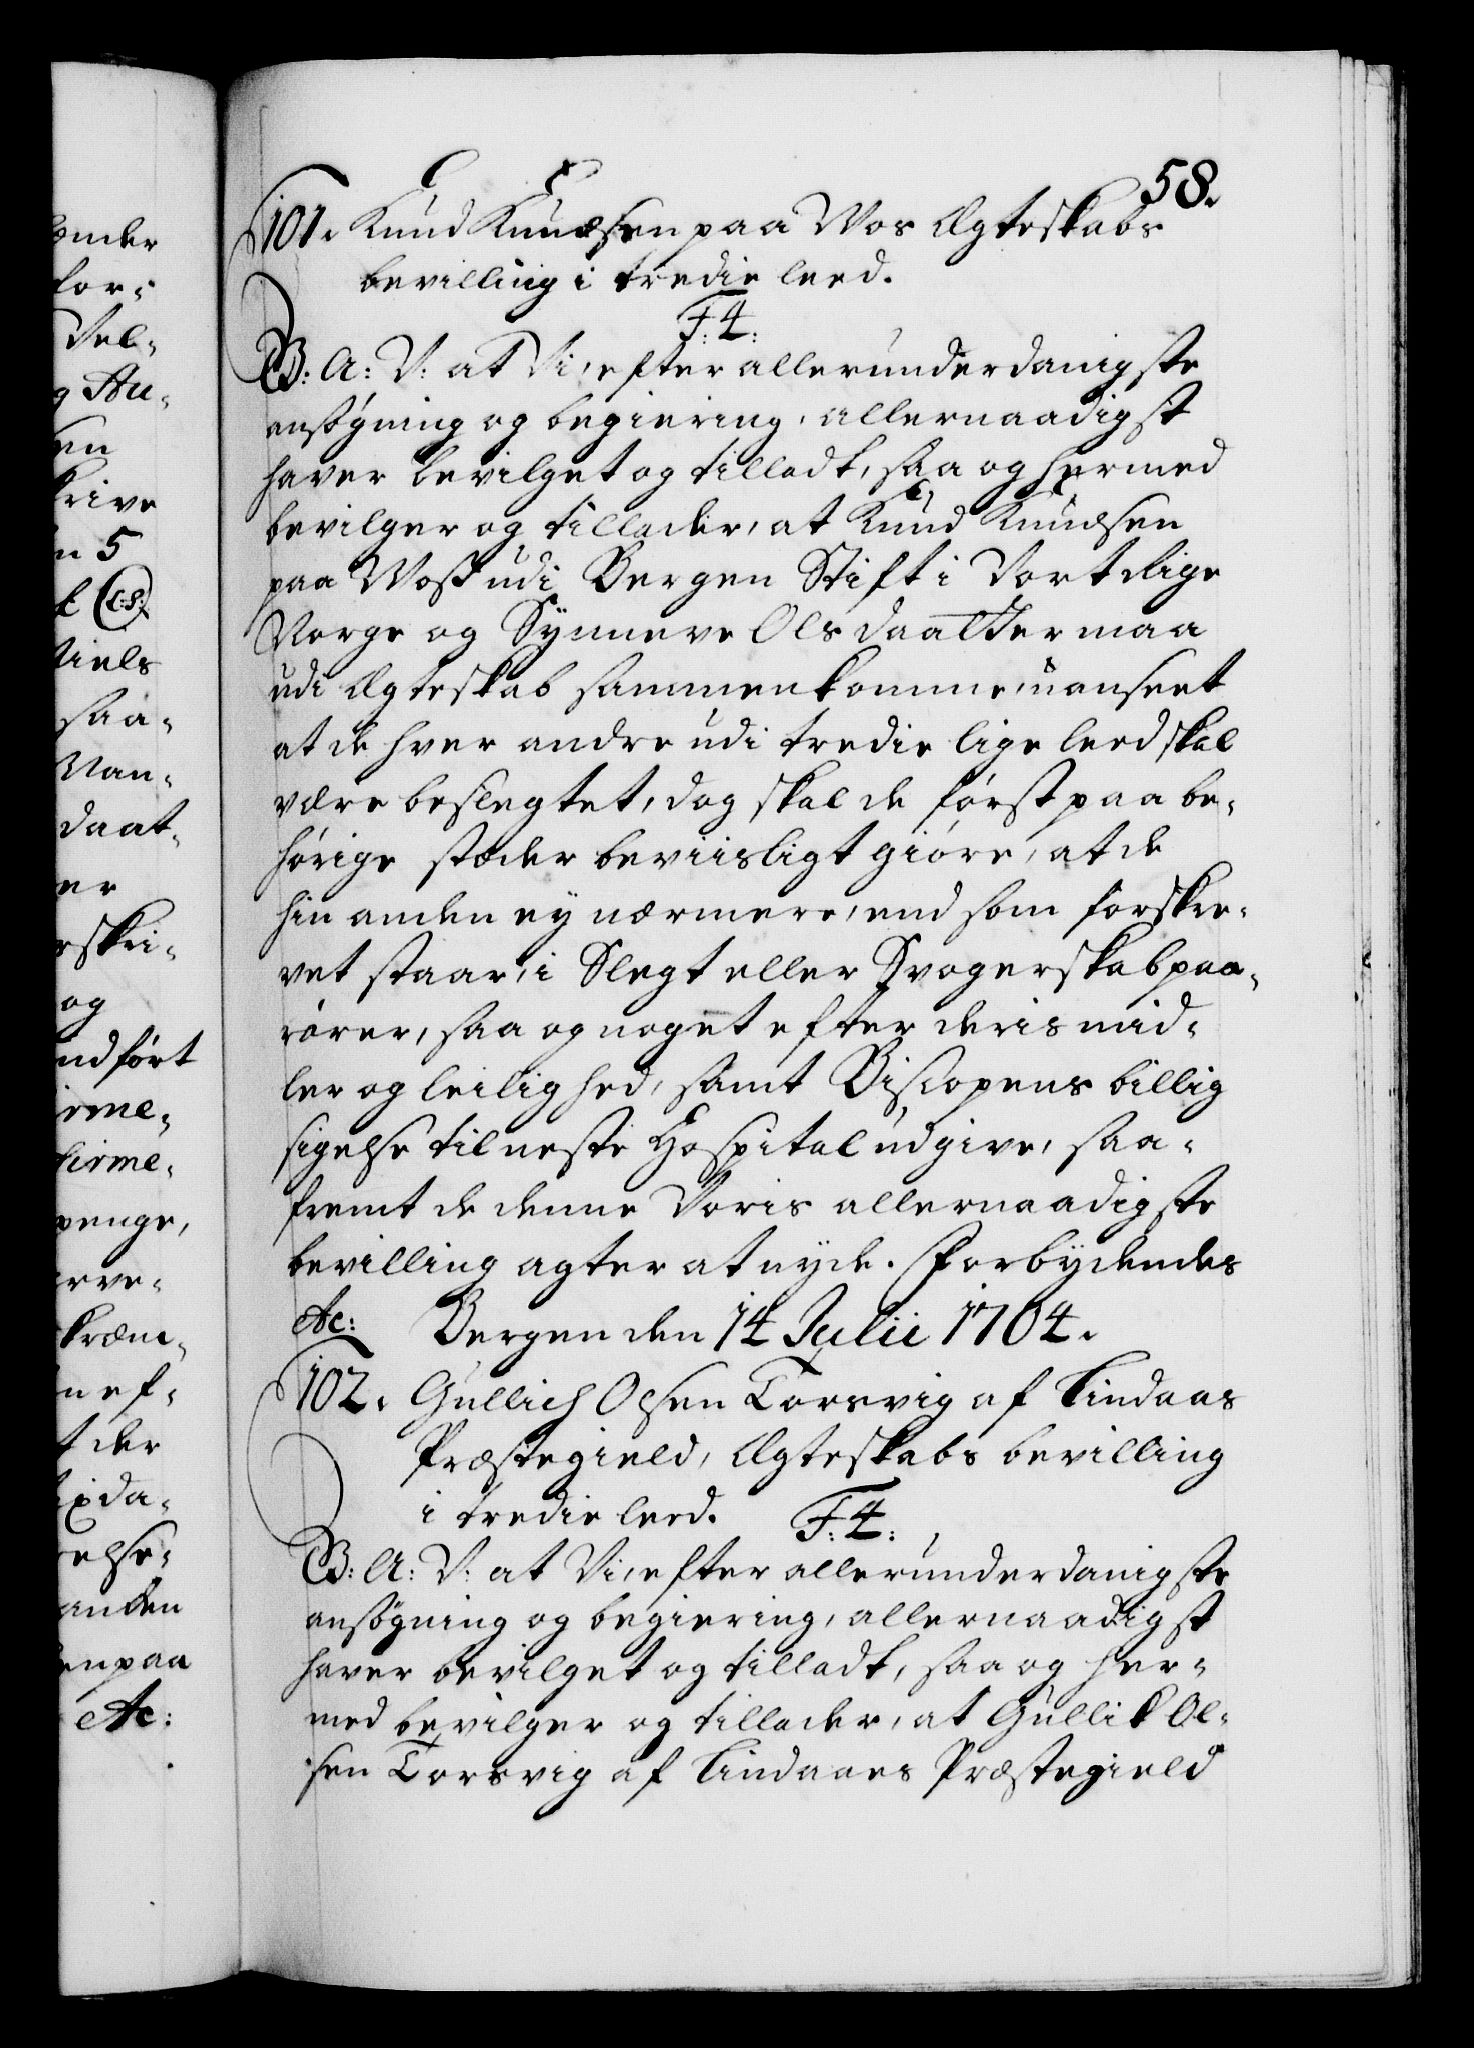 58.
101. Knud Knudsen paa Vos Ægteskabs
bevilling i tredie leed.
F: 4:
G: A: V: at Vi, efter allerunderdanigste
ansögning og begiering, allernaadigst
haver bevilget og tilladt, saa og hermed
bevilger og tillader, at Knud Knudsen
paa Voss udi Bergen Stift i Vort Rige
Norge og Synneve Olsdaatter maa
udi Ægteskab sammenkomme, uanseet
at de hver andre udi tredie lige leed skal
være beslegtet, dog skal de först paa be-
hörige stæder beviisligt giöre, at de
hin anden ey nærmere, end som forskre-
vet staar, i Slegt eller Svogerskab paa-
rörer, saa og noget efter deris mid-
ler og leilighed, samt Biscopens billig
sigelse til neste Hospital udgive, saa-
fremt de denne Voris allernaadigste
bevilling agter at nyde. Forbydendes
etc: Bergen den 14 Julii 1704.
102. Gullich Olsen Torsvig af Lindaas
Præstegield, Ægteskabs bevilling
i tredie leed. F: 4:
G: A: V: at Vi, efter allerunderdanigste
ansögning og begiering, allernaadigst
haver bevilget og tilladt, saa og her-
med bevilger og tillader, at Gullik Ol-
sen Torsvig af Lindaaes Præstegield
for-
Del-
en
n 5
L:S:
Niels
saa-
daat-
er
og
indfört
penge,
n ef-
t der
else-
anden
en paa
etc: